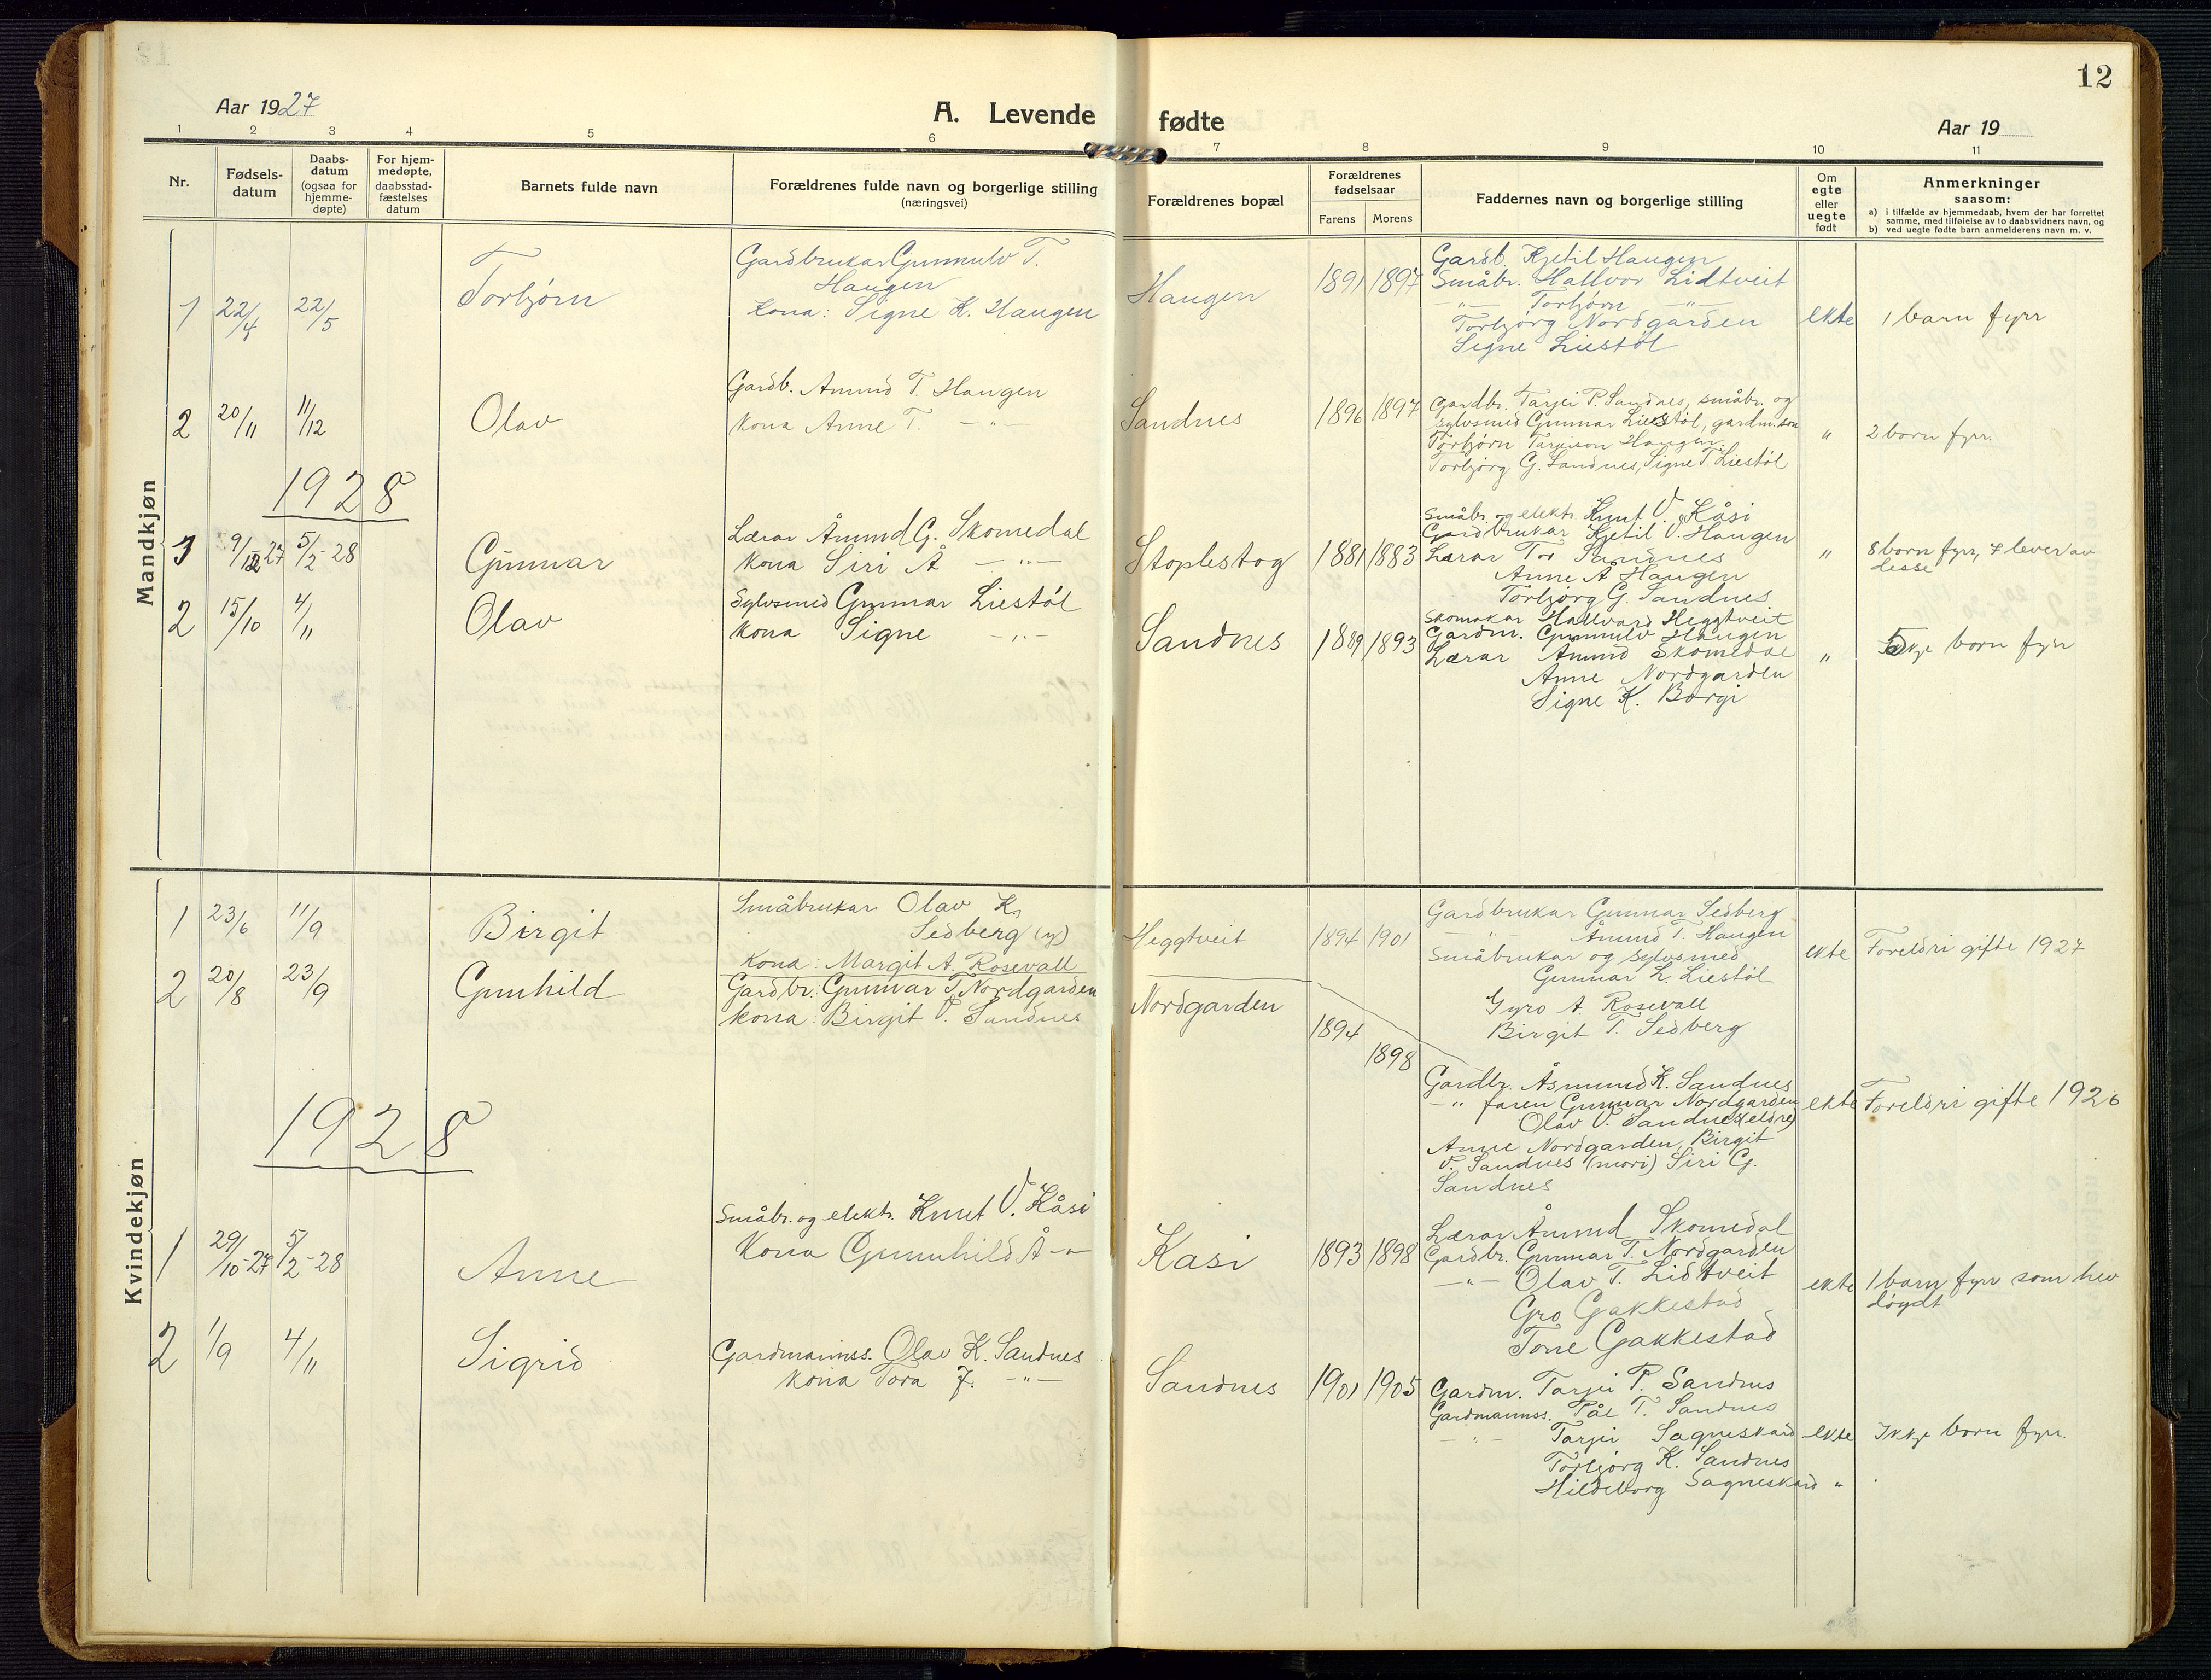 12
Aar 1927
A. Levende fødte
Aar 19
1 2 3 4 5 6 7 8 9 10 11
Nr.
Fødsels-
datum
Daabs-
datum
(ogsaa for
hjemme-
døpte)
For hjem-
medøpte,
daabsstad-
fæstelses
datum
Barnets fulde navn
Forældrenes fulde navn og borgerlige stilling
(næringsvei)
Forældrenes bopæl
Forældrenes
fødselsaar
Farens Morens
Faddernes navn og borgerlige stilling
Om
egte
eller
uegte
født
Anmerkninger
saasom:
a) i tilfælde av hjemmedaab, hvem der har forrettet
samme, med tilføielse av to daabsvidners navn, og
b) ved uegte fødte barn anmelderens navn m. v.
Mandkjøn
1 22/4 22/5 Torbjørn
Gardbrukar Gunnulv T.
Haugen
Kona: Signe K. Haugen
Haugen 1891 1897
Gardb. Kjetil Haugen
Småbr. Hallvor Lidtveit
-"- Torbjørn -"-
Torbjørg Nordgarden
Signe Liestøl
ekte 1 barn fyrr
2 20/11 11/12 Olav
Gardb. Åmund T. Haugen
Kona Anne T. -"-
Sandnes 1896 1897
Gardbr. Tarjei P. Sandnes, småbr. og
sylvsmed Gunnar Liestøl, gardm.son
Torbjørn Tarjeison Haugen.
Torbjørg G. Sandnes, Signe T. Liestøl
" 2 born fyrr.
1928
3 9/12-27 5/2-28 Gunnar
Lærar Åmund G. Skomedal
Kona Siri Å -"-
Stoplestog 1881 1883
Småbr. og elektr. Knut V. Kåsi
Gardbrukar Kjetil V. Haugen
Lærar Tor Sandnes
Anne Å Haugen
Torbjørg G. Sandnes
" 8 born fyrr, 7 lever av
desse
2 15/10 4/11 Olav
Sylvsmed Gunnar Liestøl
Kona Signe -"-
Sandnes 1889 1893
Skomakar Hallvard Heggtveit
Gardm. Gunnulv Haugen
Lærar Åmund Skomedal
Anne Nordgarden
Signe K. Borgi
" 5 born fyrr
Kvindekjøn
1 23/6 11/9 Birgit
Småbrukar Olav K.
Sedberg (y)
Kona: Margit A. Rosevall
Heggtveit 1894 1901
Gardbrukar Gunnar Sedberg
-"- Åmund T. Haugen
Småbrukar og sylvsmed
Gunnar L. Liestøl
Gyro A. Rosevall
Birgit T. Sedberg
ekte Foreldri gifte 1927
2 20/8 23/9 Gunhild
Gardbr. Gunnar T. Nordgarden
Kona: Birgit V. Sandnes
Nordgarden 1894 1898
Gardbr. Åsmund K. Sandnes
-"- faren Gunnar Nordgarden
Olav V. Sandnes (eldre)
Anne Nordgarden, Birgit
V. Sandnes (mori) Siri G.
Sandnes
ekte Foreldri gifte 1926
1928
1 29/10-27 5/2-28 Anne
Småbr. og elektr. Knut V. Kåsi
Kona Gunnhild Å -"-
Kasi 1893 1898
Lærar Åmund Skomedal
Gardbr. Gunnar T. Nordgarden
-"- Olav T. Lidtveit
Gro Gakkestad
Tone Gakkestad
ekte 1 barn fyrr som hev
døydt
2 1/9 4/11 Sigrid
Gardmannss. Olav K. Sandnes
Kona Tora J. -"-
Sandnes 1901 1905
Gardm. Tarjei P. Sandnes
Gardmannss. Pål T. Sandnes
-"- Tarjei Sagneskard
Torbjørg K. Sandnes
Hildeborg Sagneskard "
ekte Ikkje born fyrr.